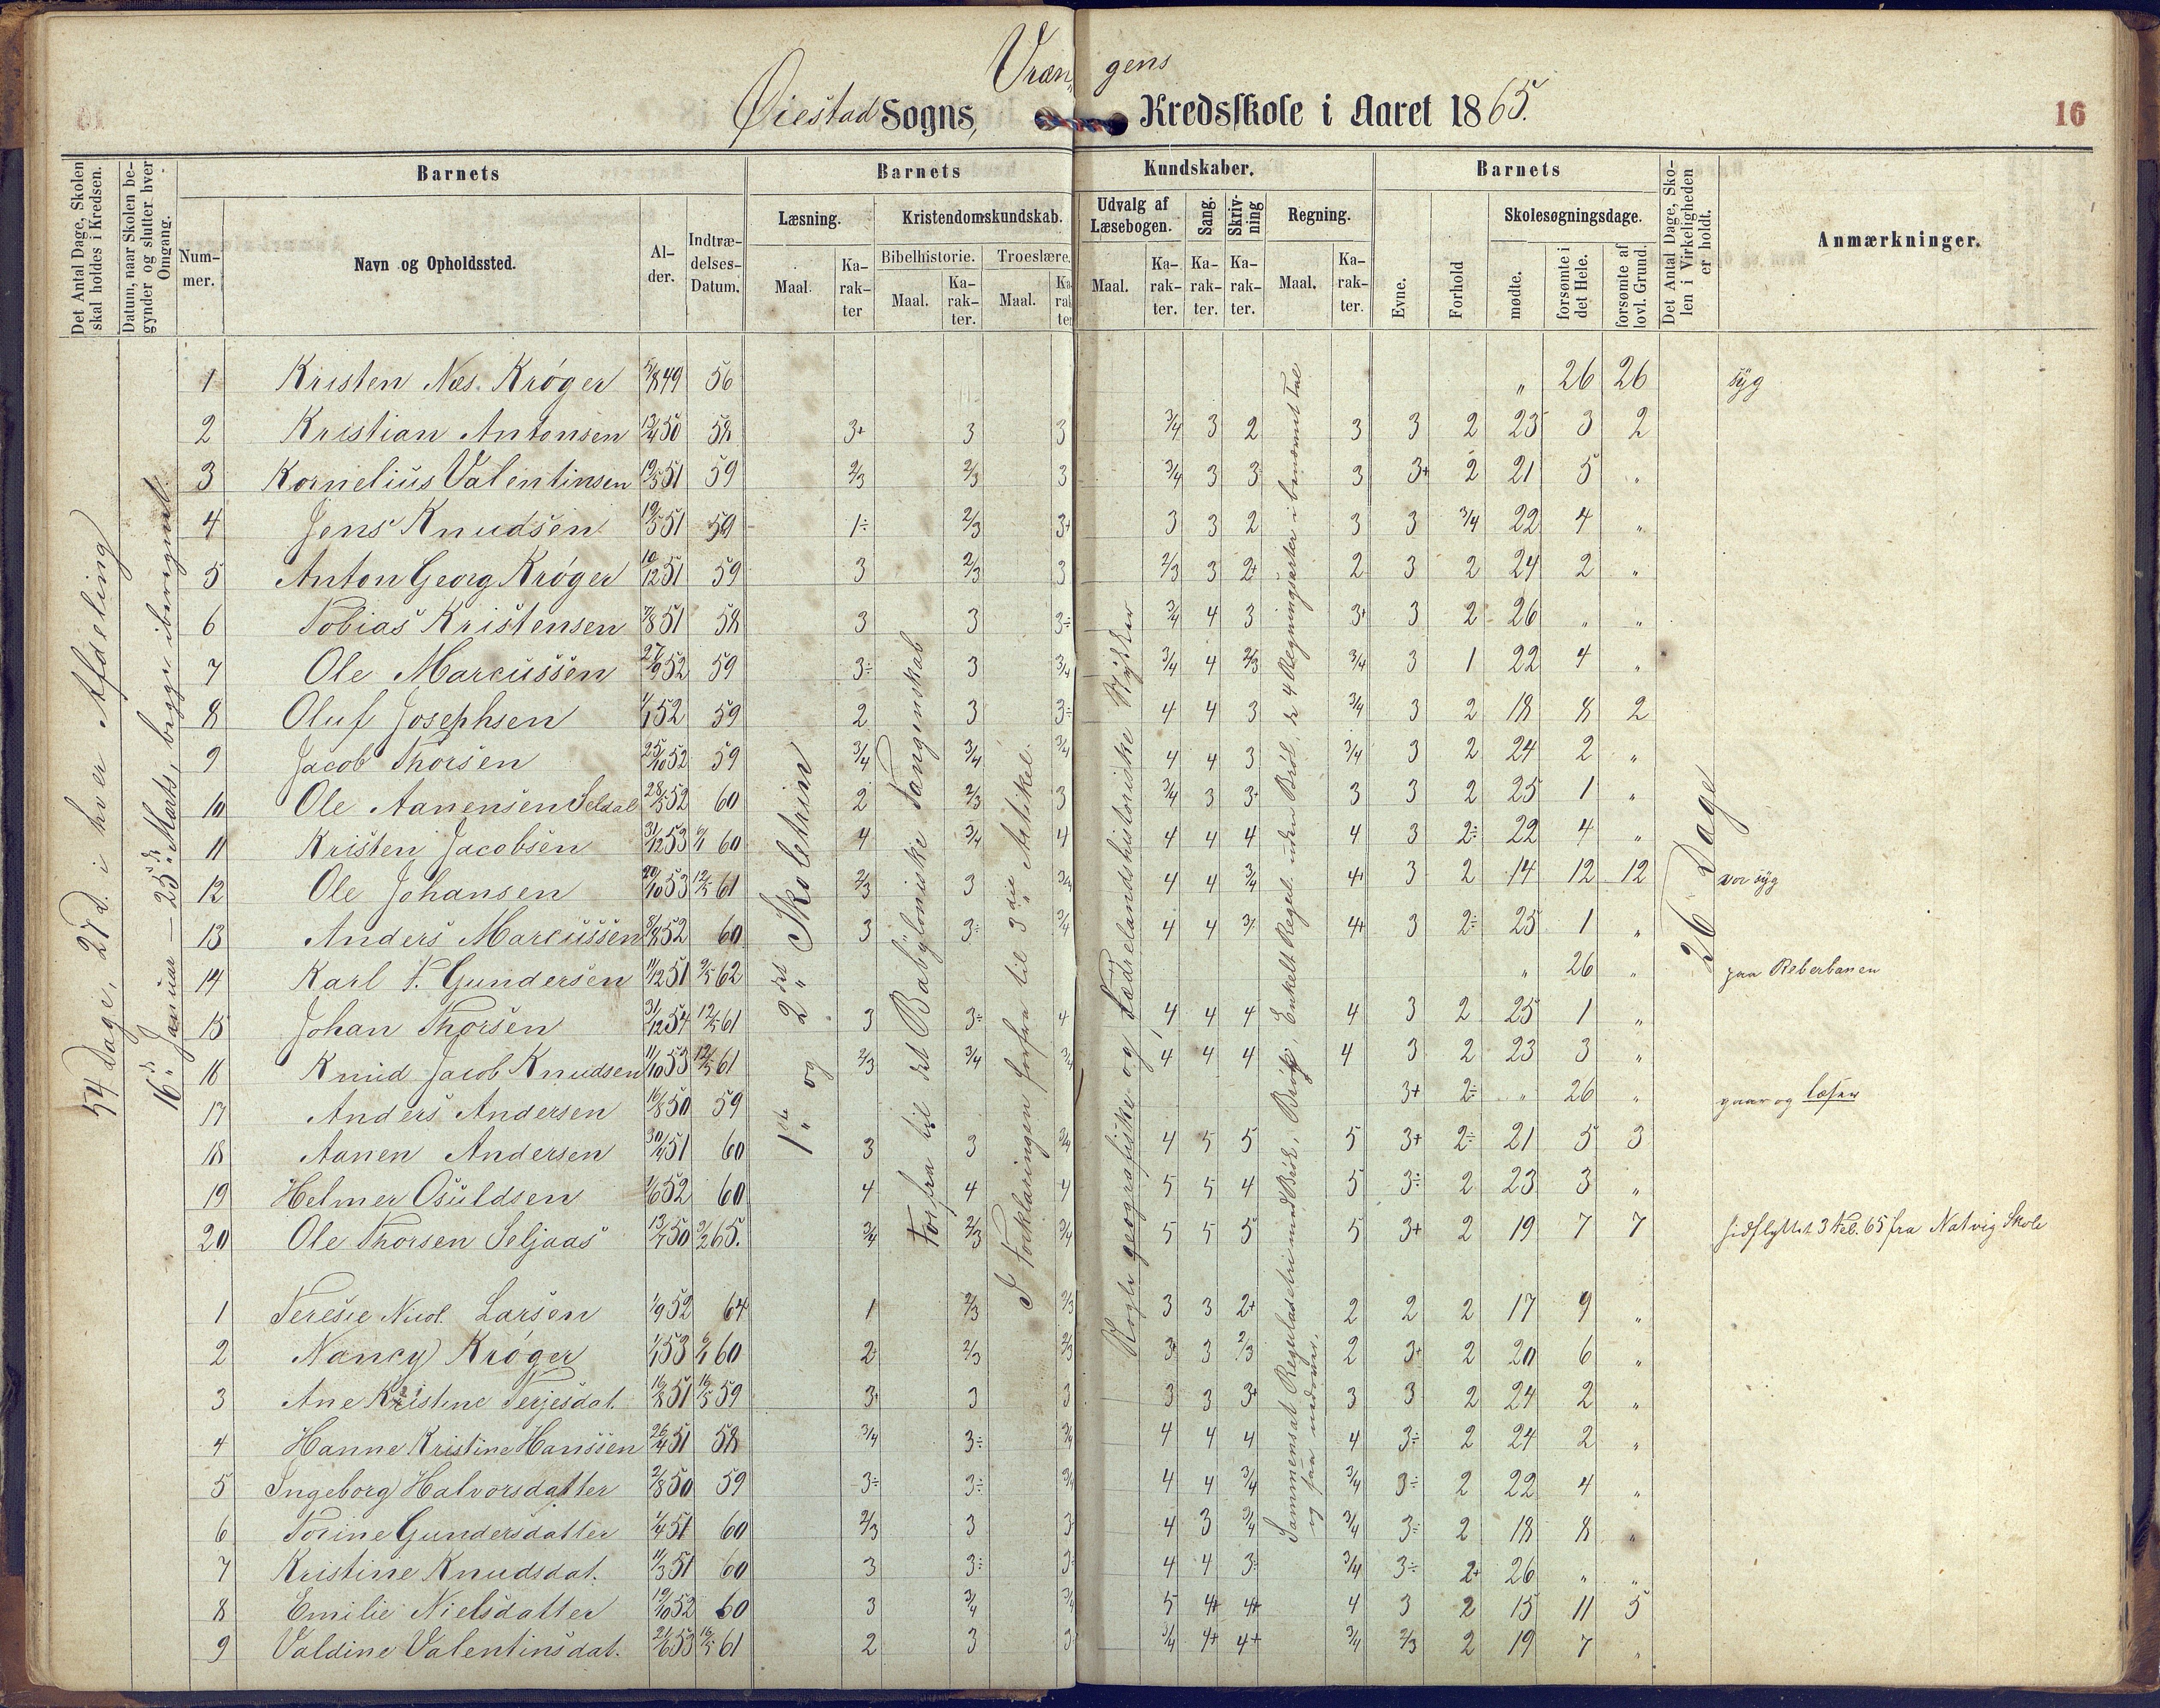 Vræn„ gens
Øiestad Sogns, Kredsskole i Aaret 1865.
16
Det Antal Dage, Skolen skal holdes i Kredsen.
Datum, naar Skolen begynder og slutter hver Omgang.
Barnets
Nummer.
Navn og Opholdssted.
Alder.
Indtrædelses-Datum.
Barnets Kundskaber.
Læsning.
Maal.
Karakter
Kristendomskundskab.
Bibelhistorie.
Maal.
Karakter.
Troeslære.
Maal.
Karakter
Udvalg af Læsebogen.
Maal.
Karakter.
Sang.
Karakter.
Skrivning
Karakter.
Regning.
Maal.
Karakter.
Barnets
Evne.
Forhold
Skolesøgningsdage.
mødte.
forsømte i det Hele.
forsømte af lovl. Grund.
Det Antal Dage, Skolen i Virkeligheden er holdt.
Anmærkninger.
54 Dage, 27 d. i hver Afdeling
16de Januar — 25de Marts, begge iberegnet.
1ste og 2det Skoletrin
Forfra til det Babyloniske Fangenskab
I Forklaringen forfra til 3die Artikel.
Nogle geografiske og fædrelandshistoriske Stykker
Sammensat Reguladetri med Brøk, Brøk, Enkelt Regul. uden Brøk, de 4 Regningsarter i benævnt Tal
og faa nedover.
26 Dage
1 Kristen Næs. Krøger 5/8 49 56 „ 26 26 syg
2 Kristian Antonsen 13/4 50 58 3+ 3 3 3/4 3 2 3 3 2 23 3 2
3 Kornelius Valentinsen 19/5 51 59 2/3 2/3 3 3/4 3 3 3 3+ 2 21 5 „
4 Jens Knudsen 19/5 51 59 1÷ 2/3 3+ 3 3 2 3 3 3/4 22 4 „
5 Anton Georg Krøger 10/12 51 59 3 2/3 3 2/3 3 2+ 2 3 2 24 2 „
6 Tobias Kristensen 7/8 51 58 3 3 3÷ 3/4 4 3 3+ 3 2 26 „ „
7 Ole Marcussen 27/9 52 59 3÷ 3 3/4 3/4 4 2/3 3/4 3 1 22 4 „
8 Oluf Josephsen 1/1 52 59 2 3 3÷ 4 4 3 3/4 3 2 18 8 2
9 Jacob Thorsen 25/10 52 59 3/4 3/4 3/4 4 4 3 3/4 3 2 24 2 „
10 Ole Aanensen Seldal 28/5 52 60 2 2/3 3 3/4 3 3+ 3 3 2 25 1 „
11 Kristen Jacobsen 31/12 53 9/1 60 4 3/4 4 4 4 4 4 3 2÷ 22 4 „
12 Ole Johansen 20/10 53 12/5 61 2/3 3 3/4 4 4 3/4 4+ 3 2 14 12 12 var syg
13 Anders Marcussen 8/8 52 60 3 3÷ 3/4 4 4 3/ 4+ 3 2÷ 25 1 „
14 Karl F. Gundersen 11/12 51 9/5 62 „ 26 „ paa Reberbanen
15 Johan Thorsen 31/12 54 12/5 61 3 3÷ 4 4 4 4 4 3 2 25 1 „
16 Knud Jacob Knudsen 11/10 53 12/5 61 2/3 3/4 3/4 4 4 4 4 3 2 23 3 „
17 Anders Andersen 16/8 50 59 3+ 2÷ „ 26 „ gaar og læser
18 Aanen Andersen 30/4 51 60 3 3 3/4 4 5 5 5 3+ 2÷ 21 5 3
19 Helmer Osuldsen 1/6 52 60 4 4 4 5 5 4 5 3÷ 2 23 3 „
20 Ole Thorsen Seljaas 13/7 50 9/2 65. 3/4 2/3 3/4 5 5 5 5 3+ 2 19 7 7 hidflyttet 3 Feb. 65 fra Natvig Skole
1 Teresie Nicol. Larsen 1/9 52 64 1 2/3 2/3 3 3 2+ 2 2 2 17 9 „
2 Nancy Krøger 1/1 53 9/1 60 2 2/3 2/3 3+ 3 2/3 2 3+ 2 20 6 „
3 Ane Kristine Terjesdat. 16/8 51 16/5 59 3+ 3 3 3 3 3+ 3 3 2 24 2 „
4 Hanne Kristine Hanssen 26/4 51 58 3/4 3÷ 3/4 4 4 4 4 3÷ 2 24 2 „
5 Ingeborg Halvorsdatter 2/8 50 59 3÷ 3÷ 3/4 4 4 3/4 3/4 3÷ 2 22 4 „
6 Torine Gundersdatter 1/4 51 60 2/3 3 3 4 3 3/4 3/4 3÷ 2 18 8 „
7 Kristine Knudsdat. 11/3 51 60 3 3÷ 3 4 4 3 3/4 3÷ 2+ 26 „ „
8 Emilie Nielsdatter 19/10 52 60 3 3/4 3/4 5 4+ 4+ 4 3 2 15 11 5
9 Valdine Valentinsdat. 21/6 53 16/5 61 2 3 3 3/4 4+ 4+ 3/4 2/3 2 19 7 „